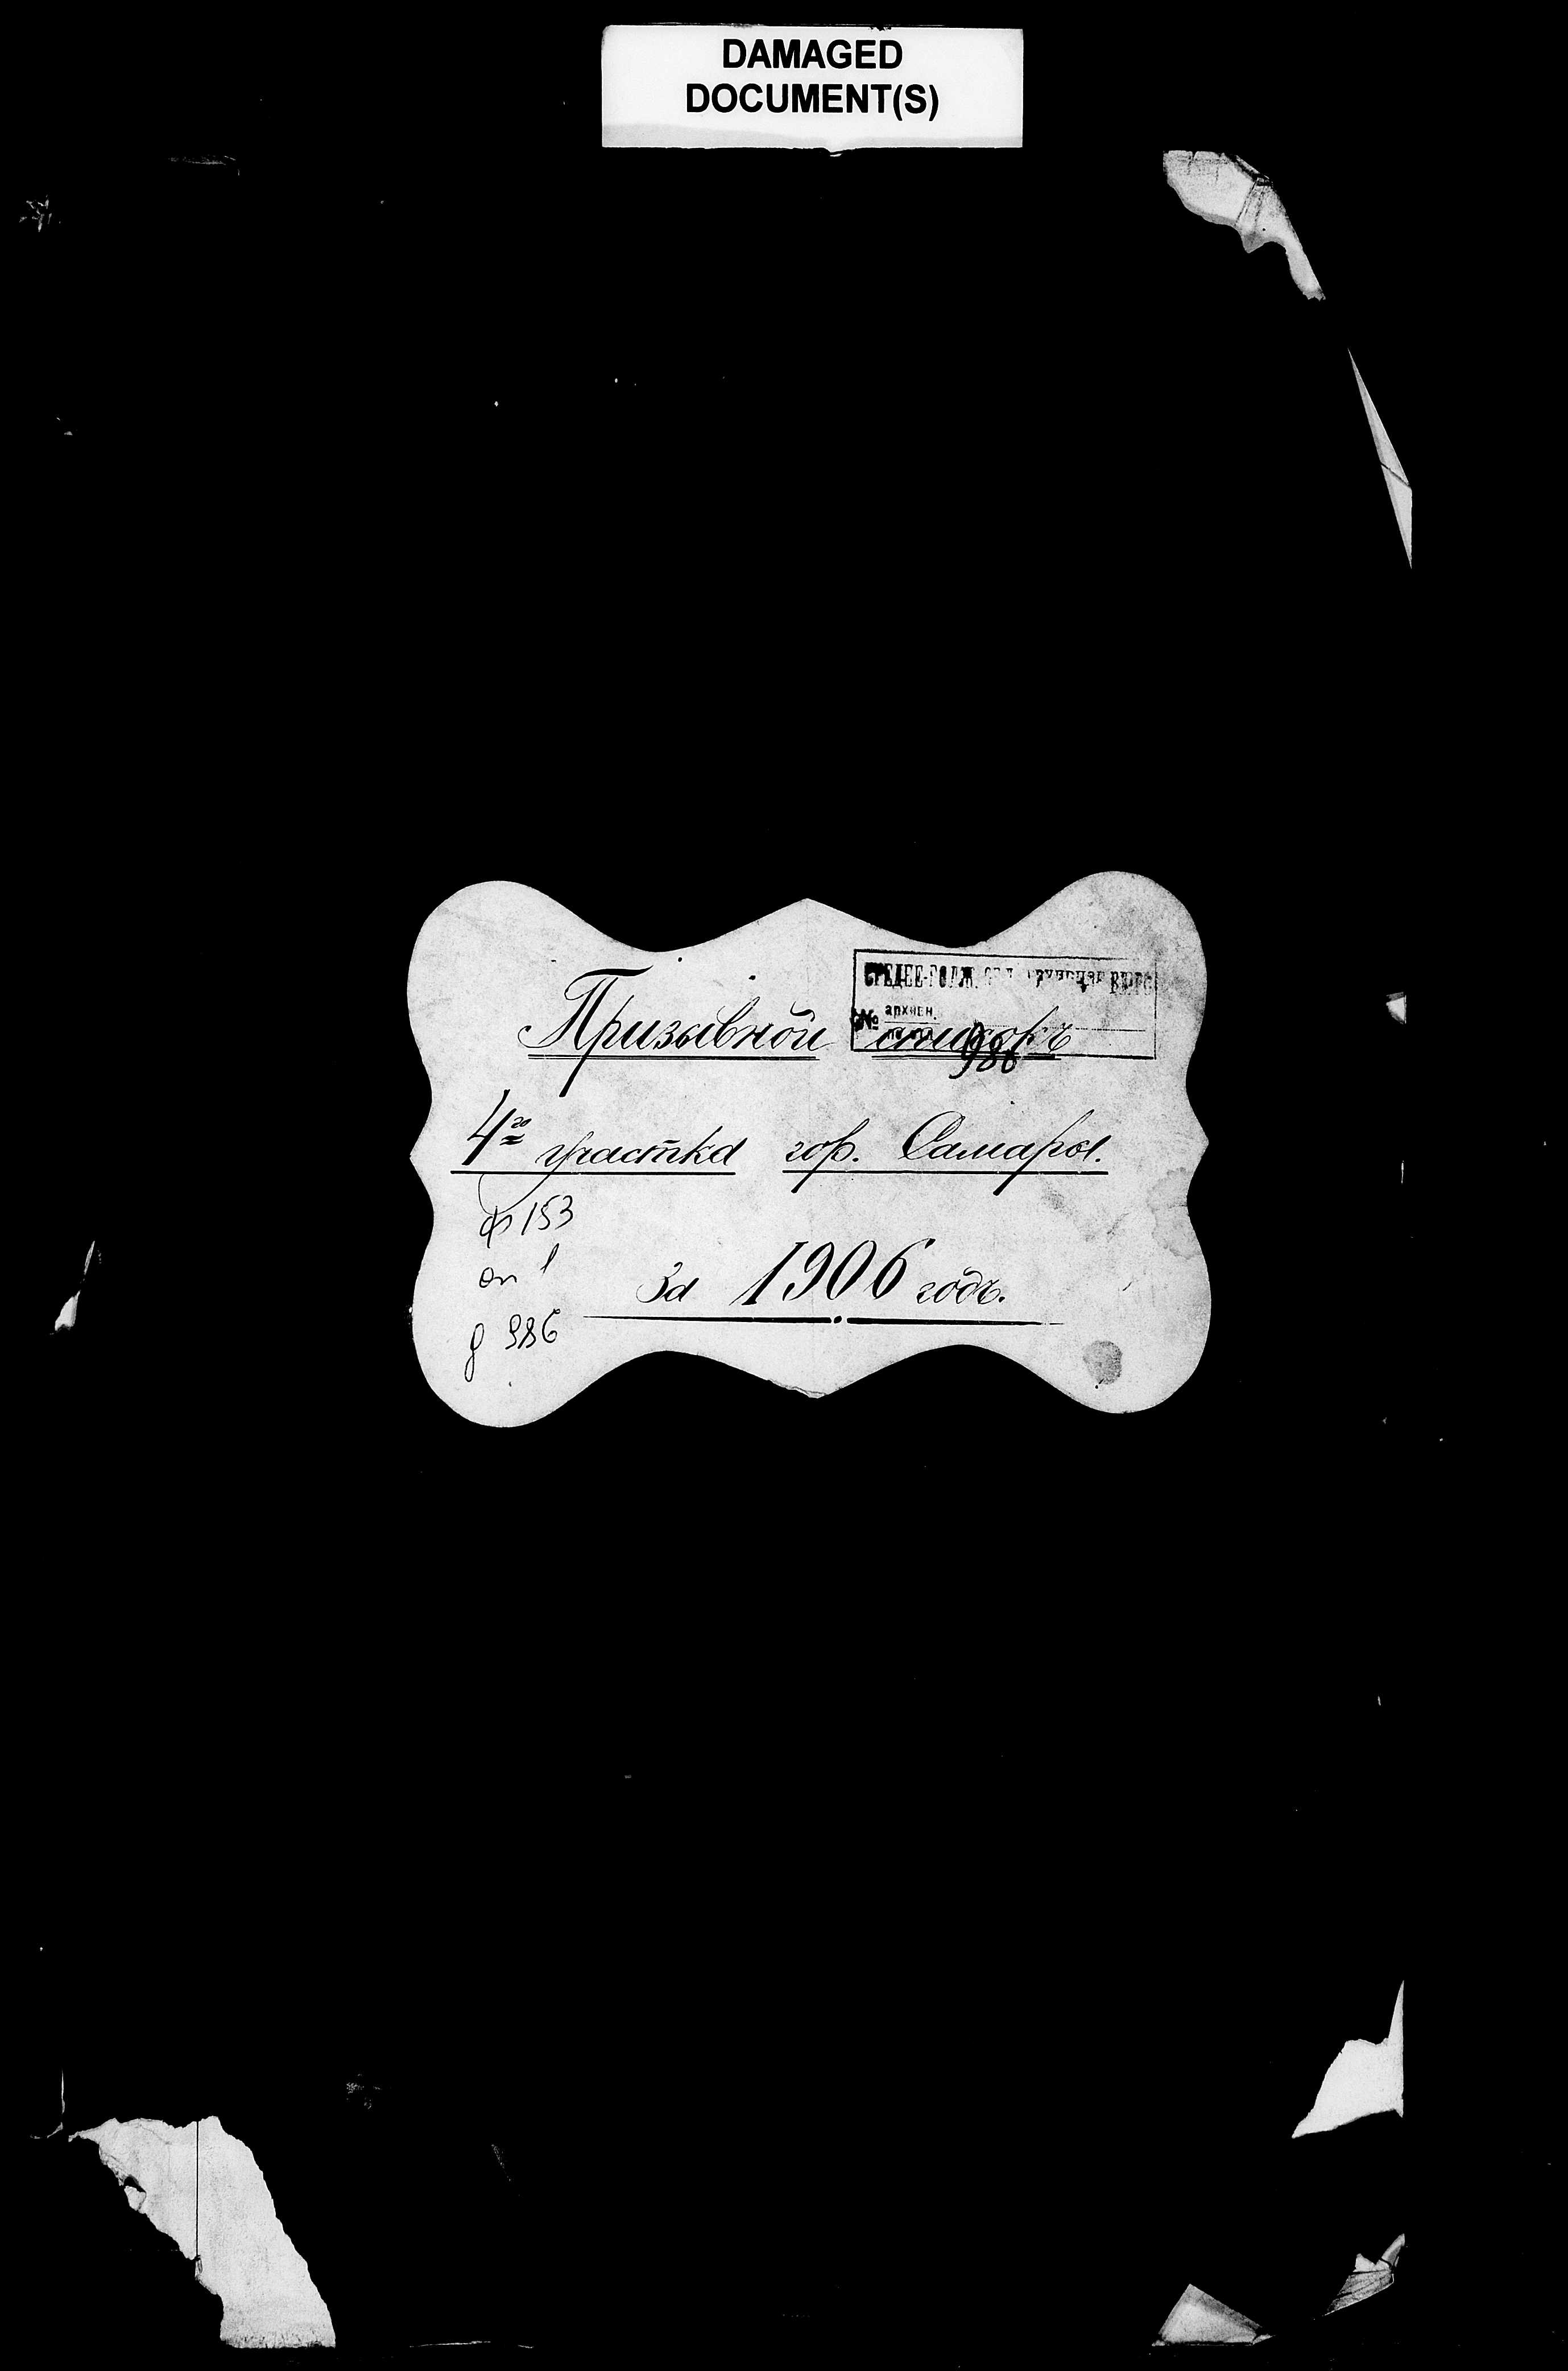 DAMAGED
DOCUMENT(S)
СРЕДНЕ-ВОЛЖ.
архивн.
№
986
Призывной списокъ
4го участка гор. Самары.
ф 153
оп 1
За 1906 годъ.
д 986